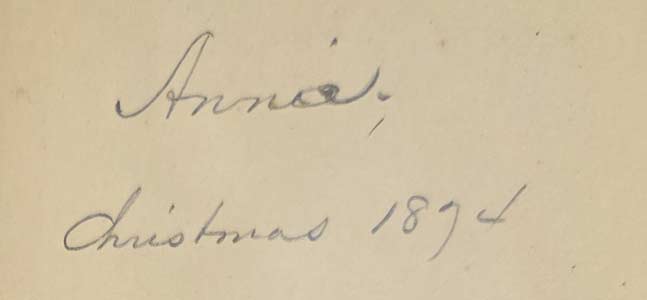 Annie,
Christmas 1894